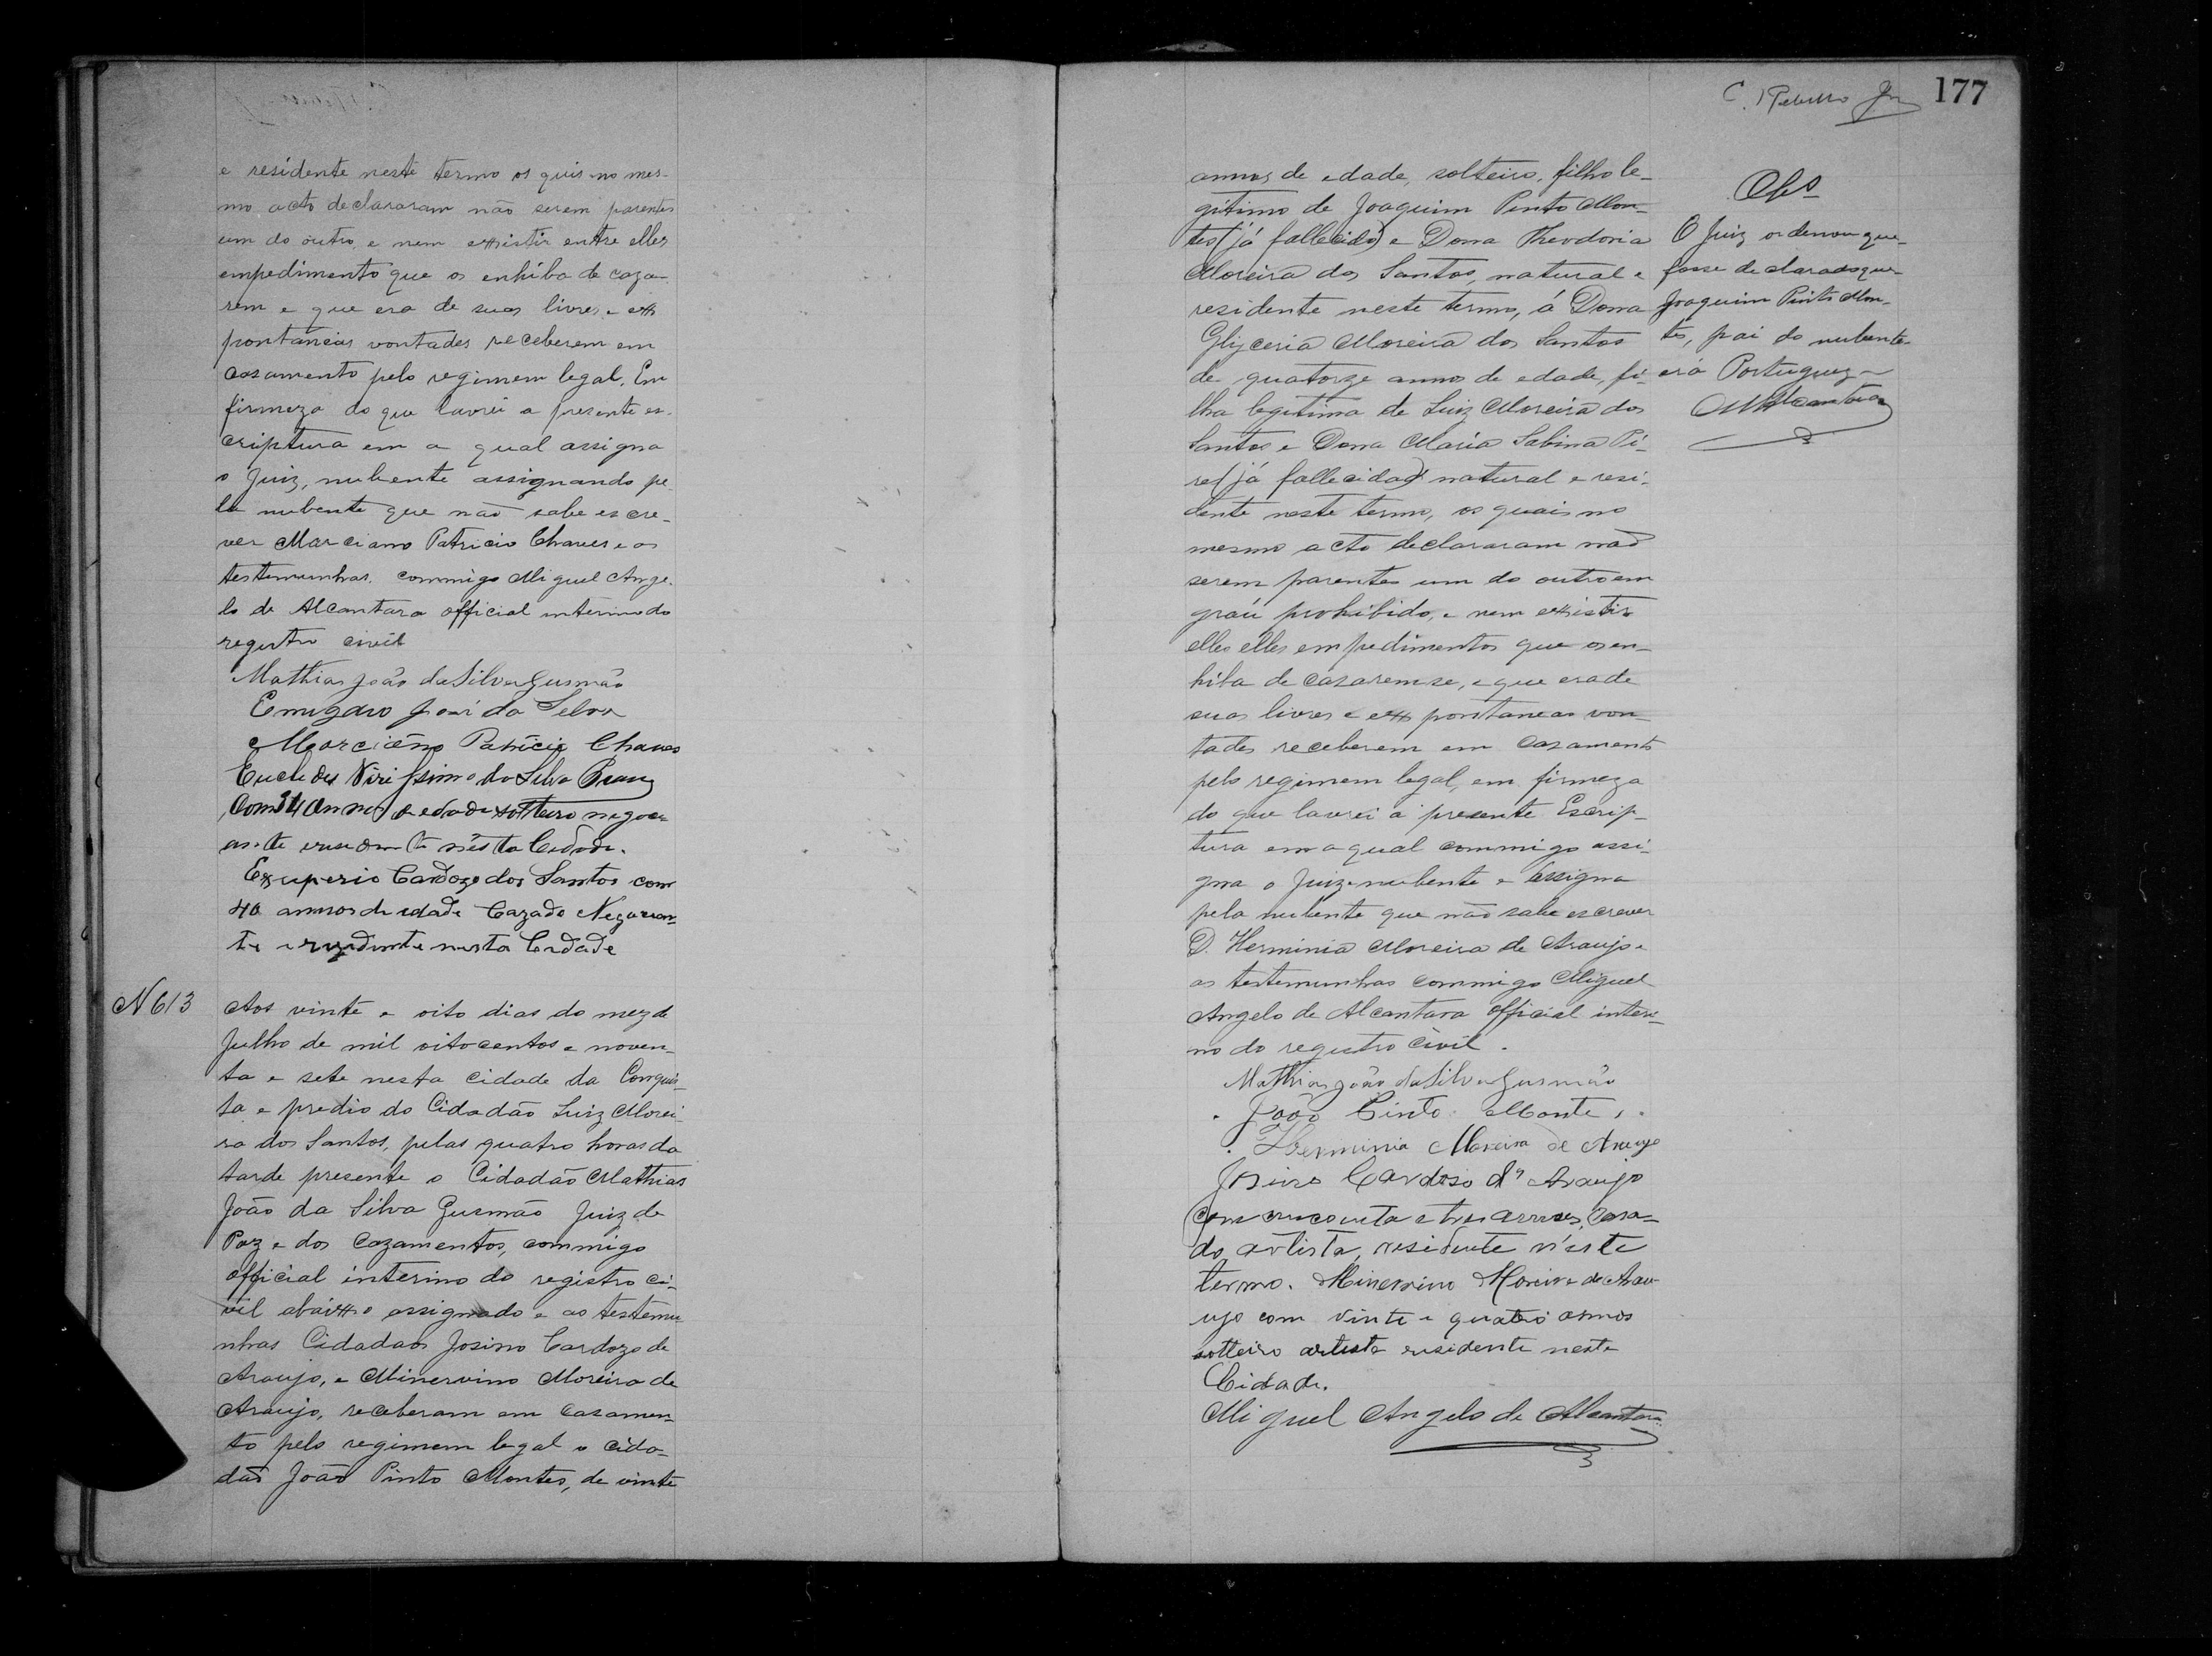 e residente neste termo os quis no mes-
mo acto declararam não serem parentes
um do outro, e nem existir entre elles
empedimento que os enhiba de caza-
rem e que era de suas livres e ex
pontaneas vontades receberem em
casamento pelo regimem legal. Em
firmeza do que lavrei a presente es-
criptura em a qual assigna
o Juiz, nubente assignando pe
la nubente que não sabe escre-
ver Marciano Patricio Chaves e as
testemunhas. commigo Miguel Ange-
lo de Alcantara official interino do
registro civil
Mathias João da Silva Gusmão
José da Silva
Marciano Patricio Chaves
Euclides Virissimo da Silva
Com 34 annos de edade solteiro negoci
ante e residente nésta Cidade.
Exuperio Cardozo dos Santos com
40 annos de idade Cazado Negocian-
te e rezidente nesta Cidade
N 613
Aos vinte e oito dias do mez de
Julho de mil oitocentos e noven-
ta e sete nesta cidade da Conquis-
ta e predio do Cidadão Luiz Morei-
ra dos Santos, pelas quatro horas da
tarde presente o Cidadão Mathias
João da Silva Gusmão Juiz de
Paz e dos Cazamentos, commigo
official interino do registro ci-
vil abaixo assignado e as testemu-
nhas Cidadãos Josino Cardozo de
Araujo, e Minervino Moreira de
Araujo, receberam em casamen-
to pelo regimem legal o cida-
dão João Pinto Montes, de vinte
C. Rebello Jr
177
annos de edade, solteiro, filho le-
gitimo de Joaquim Pinto Mon-
tes (já fallecido) e Dona Theodoria
Moreira dos Santos, natural e
residente neste termo, á Dona
Glyceria Moreira dos Santos
de quatorze annos de edade, fi-
lha legitima de Luiz Moreira dos
Santos e Dona Maria Sabina Pi-
res (já fallecida) natural e resi-
dente neste termo, os quais no
mesmo acto declararam não
serem parentes um do outro em
graú prohibido, e nem existir
elles elles empedimentos que os en-
hiba de casarem se, e que era de
suas livres e expontaneas von-
tades receberem em Casamento
pelo regimem legal, em firmeza
do que lavrei a presente Escrip-
tura em a qual commigo assi-
gna o Juiz e nubente e assigna
pela nubente que não sabe escrever
D. Herminia Moreira de Araujo e
as testemunhas commigo Miguel
Angelo de Alcantara official interi-
no do registro civil.
Mathias João da Silva Gusmão
João Pinto Montes.
Herminia Moreira de Araujo
Josino Cardoso d' Araujo
com cincoenta e tres annos, casa-
do, artista, residente n'este
termo. Minervino Moreira de Arau-
ujo com vinte e quatro annos
solteiro artista residente nesta
Cidade.
Miguel Angelo de Alcantara
Obs
O Juiz ordenou que
fosse declarado que
Joaquim Pinto Mon-
tes, pai do nubente
era Portuguez
MAAlcantara